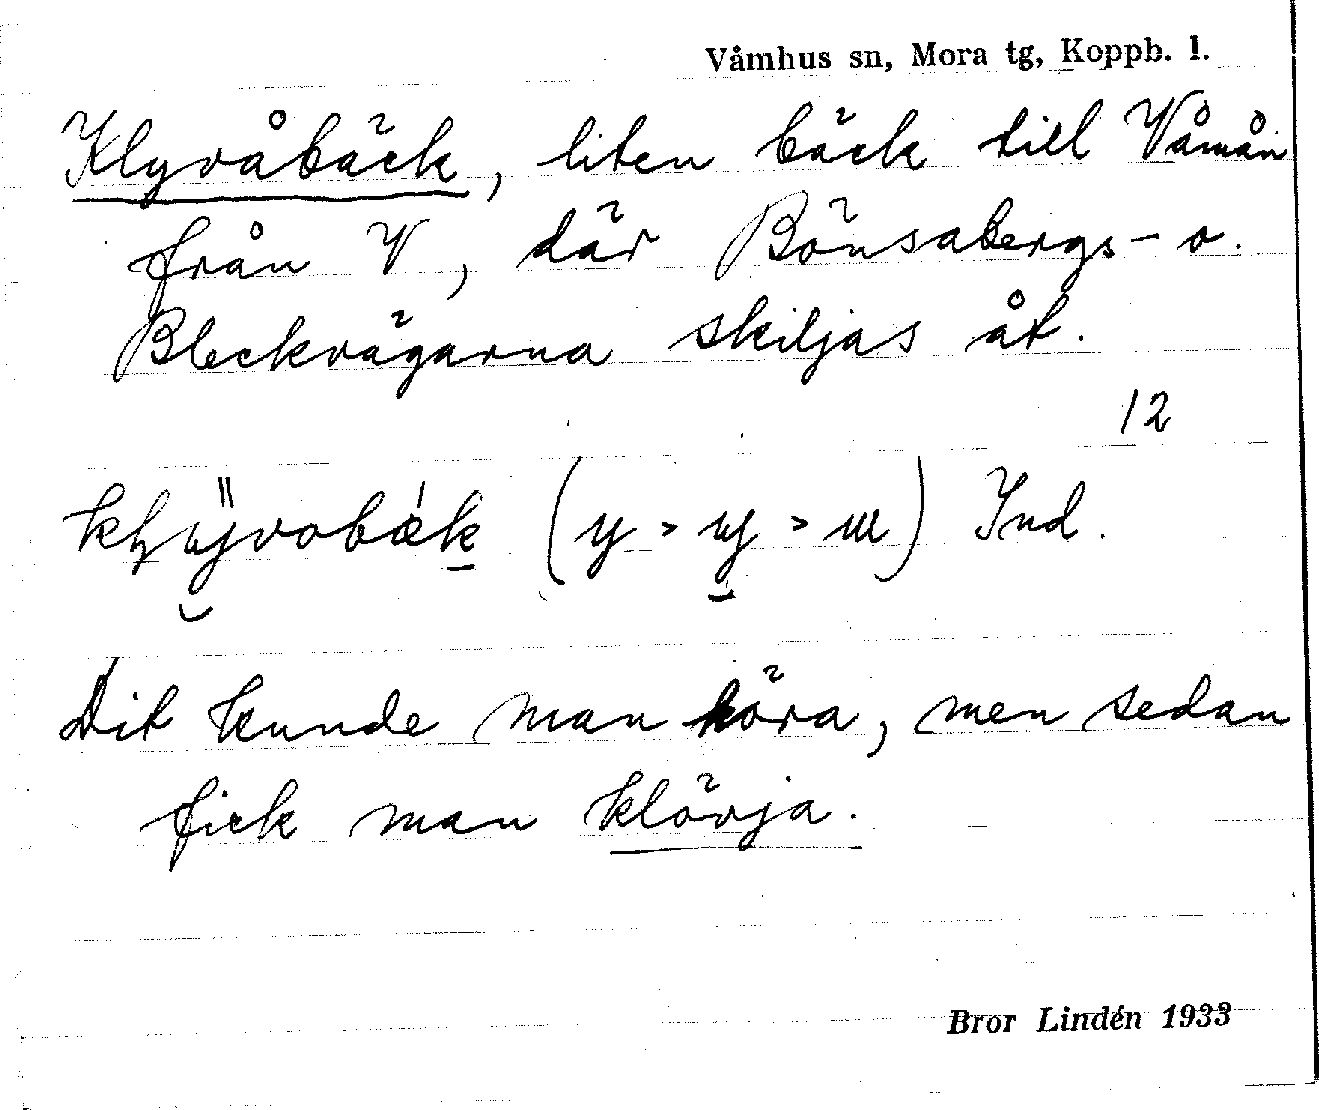 Våmhus sn, Mora tg, Koppb. l.
Klyvåbäck, liten bäck till Våmån
från V, där Bönsabergs- o.
Bleckvägarna skiljas åt.
12
(y > y > ɯ) Ind.
Dit kunde man köra, men sedan
fick man klövja.
Bror Lindén 1933